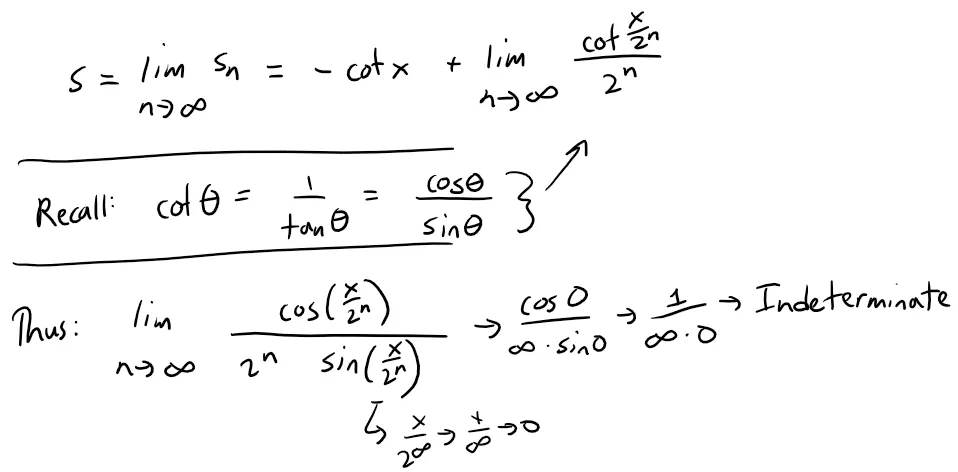 S = lim_{n→∞} S_n = - cot x + lim_{n→∞} \frac{cot \frac{x}{2^n}}{2^n}
Recall: cot θ = \frac{1}{tan θ} = \frac{cos θ}{sin θ} }
Thus: lim_{n→∞} \frac{cos(\frac{x}{2^n})}{2^n sin(\frac{x}{2^n})} → \frac{cos 0}{∞ · sin 0} → \frac{1}{∞ · 0} → Indeterminate
↳ \frac{x}{2^∞} → \frac{x}{∞} → 0